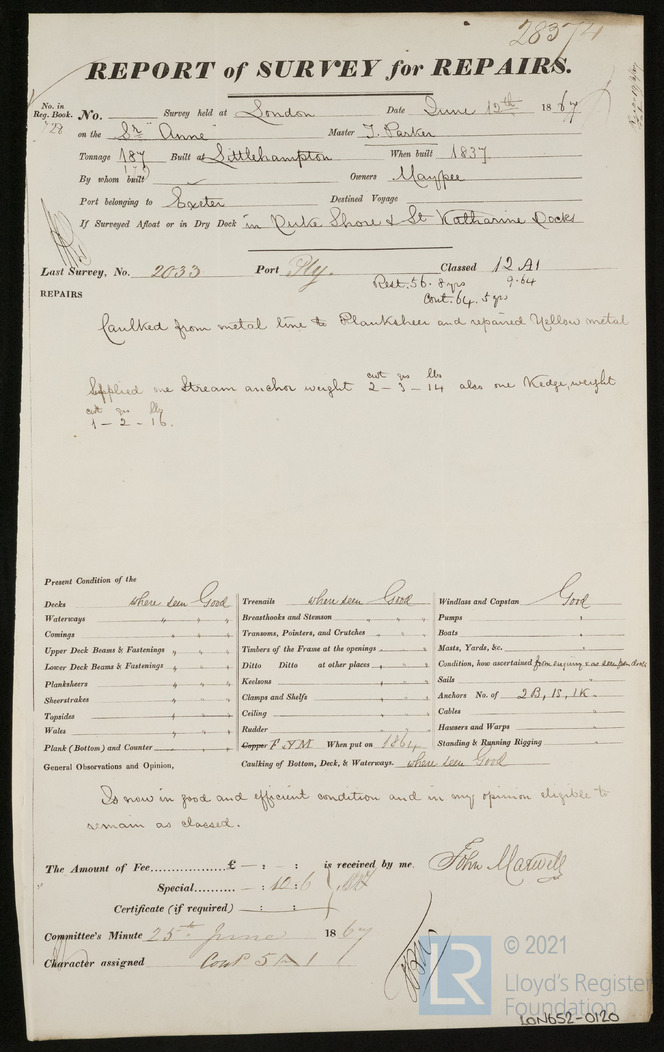 28374
REPORT of SURVEY for REPAIRS.
No. in Reg. Book. No. Survey held at London Date June 12th 1867
728 on the Sr "Anne" Master T. Parker
Tonnage 187 Built at Littlehampton When built 1837
By whom built Owners Maypee
Port belonging to Exeter Destined Voyage
If Surveyed Afloat or in Dry Dock in Duke Shore & St Katharine Docks
Last Survey, No. 2033 Port Ply. Classed 12 A1
Rest. 56. 8 yrs 9.64
Cont. 64. 5 yrs
REPAIRS
Caulked from metal line to Planksheer and repaired Yellow metal
Supplied one Stream anchor weight cwt qrs lbs 2-3-14 also one Kedge, weight
cwt qrs lbs
1-2-16.
Present Condition of the
Decks where seen Good Treenails where seen Good Windlass and Capstan Good
Waterways " " " Breasthooks and Stemson " " " Pumps "
Comings " " " Transoms, Pointers, and Crutches " " " Boats "
Upper Deck Beams & Fastenings " " " Timbers of the Frame at the openings " " " Masts, Yards, &c. "
Lower Deck Beams & Fastenings " " " Ditto Ditto at other places " " " Condition, how ascertained from enquiry & as seen from deck
Planksheers " " " Keelsons " " " Sails "
Sheerstrakes " " " Clamps and Shelfs " " " Anchors No. of 2B, 1S, 1K.
Topsides " " " Ceiling " " " Cables "
Wales " " " Rudder " " " Hawsers and Warps "
Plank (Bottom) and Counter " " " Copper F YM. When put on 1864 Standing & Running Rigging "
General Observations and Opinion, Caulking of Bottom, Deck, & Waterways. where seen Good
Is now in good and efficient condition and in my opinion eligible to
remain as classed.
The Amount of Fee.................£ — : — : is received by me. John Maxwell
Special.......... — : 10 : 6
Certificate (if required) — : — :
Committee's Minute 25th June 1867
Character assigned Cont 5 A 1
LR
© 2021
Lloyd's Register
Foundation
LON652-0120